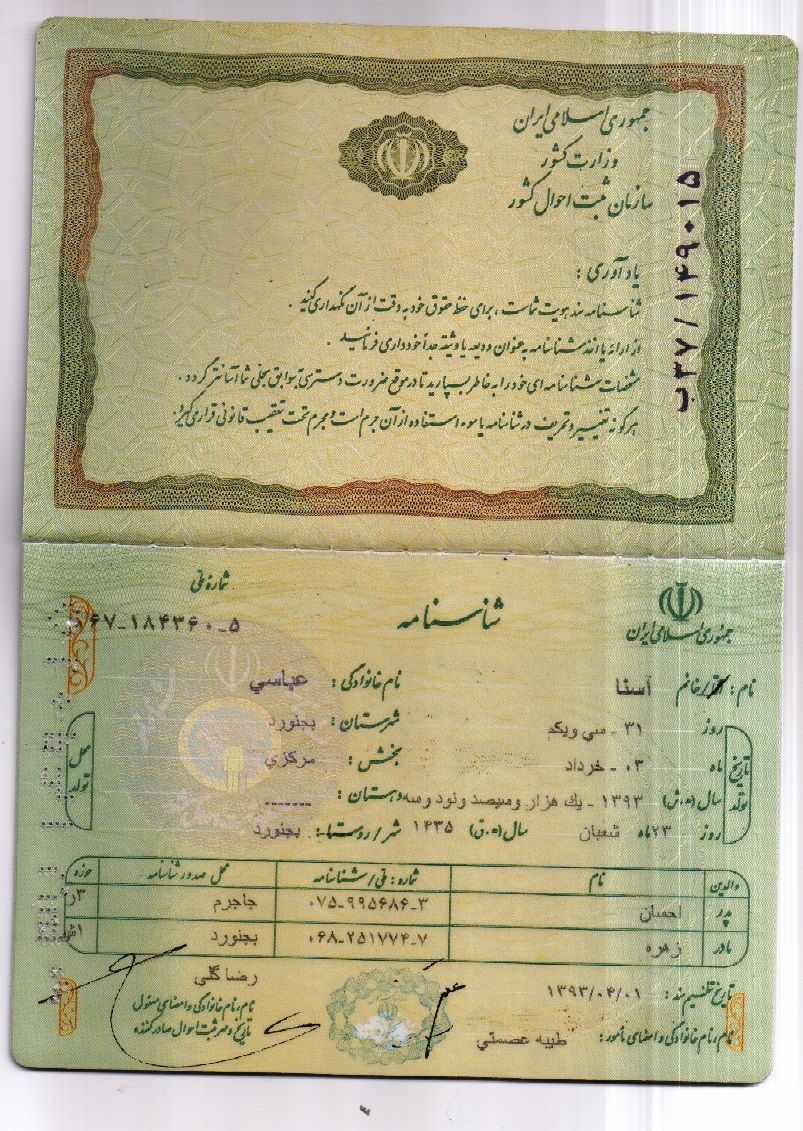 جمهوری اسلامی ایران
وزارت کشور
سازمان ثبت احوال کشور
ب۳۷/۱۴۹۰۱۵
یادآوری :
شناسنامه سند هویت شماست ، برای حفظ حقوق خود به دقت از آن نگهداری کنید .
از ارائه یا اخذ شناسنامه به عنوان ودیعه یا وثیقه جداً خودداری فرمائید .
مشخصات شناسنامه ای خود را به خاطر بسپارید تا در موقع ضرورت دسترسی به سوابق سجلی شما آسانتر گردد .
هرگونه تغییر و تحریف در شناسنامه یا سوء استفاده از آن جرم است و مجرم تحت تعقیب قانونی قرار می گیرد.
جمهوری اسلامی ایران
شناسنامه
شماره ملی
۰۶۷-۱۸۴۳۶۰-۵
نام : آقا/خانم آسنا نام خانوادگی : عباسي
تاریخ تولد
روز ۳۱ - سي ويكم
ماه ۰۳ - خرداد
سال (ه.ش) ۱۳۹۳ - يك هزار وسيصد ونود وسه
روز ۲۳ ماه شعبان سال (ه.ق) ۱۴۳۵
محل تولد
شهرستان : بجنورد
بخش : مركزي
دهستان : -------
شهر / روستا : بجنورد
والدین نام شماره : ملی / شناسنامه محل صدور شناسنامه حوزه
پدر احسان ۰۷۵-۹۹۵۶۸۶-۳ جاجرم ۳ر
مادر زهره ۰۶۸-۲۵۱۷۷۴-۷ بجنورد ۱ش
تاریخ تنظیم سند : ۱۳۹۳/۰۴/۰۱
نام ، نام خانوادگی و امضای مأمور : طيبه عصمتي
رضا گلی
نام ، نام خانوادگی و امضای مسئول
تاریخ و مهر ثبت احوال صادر کننده